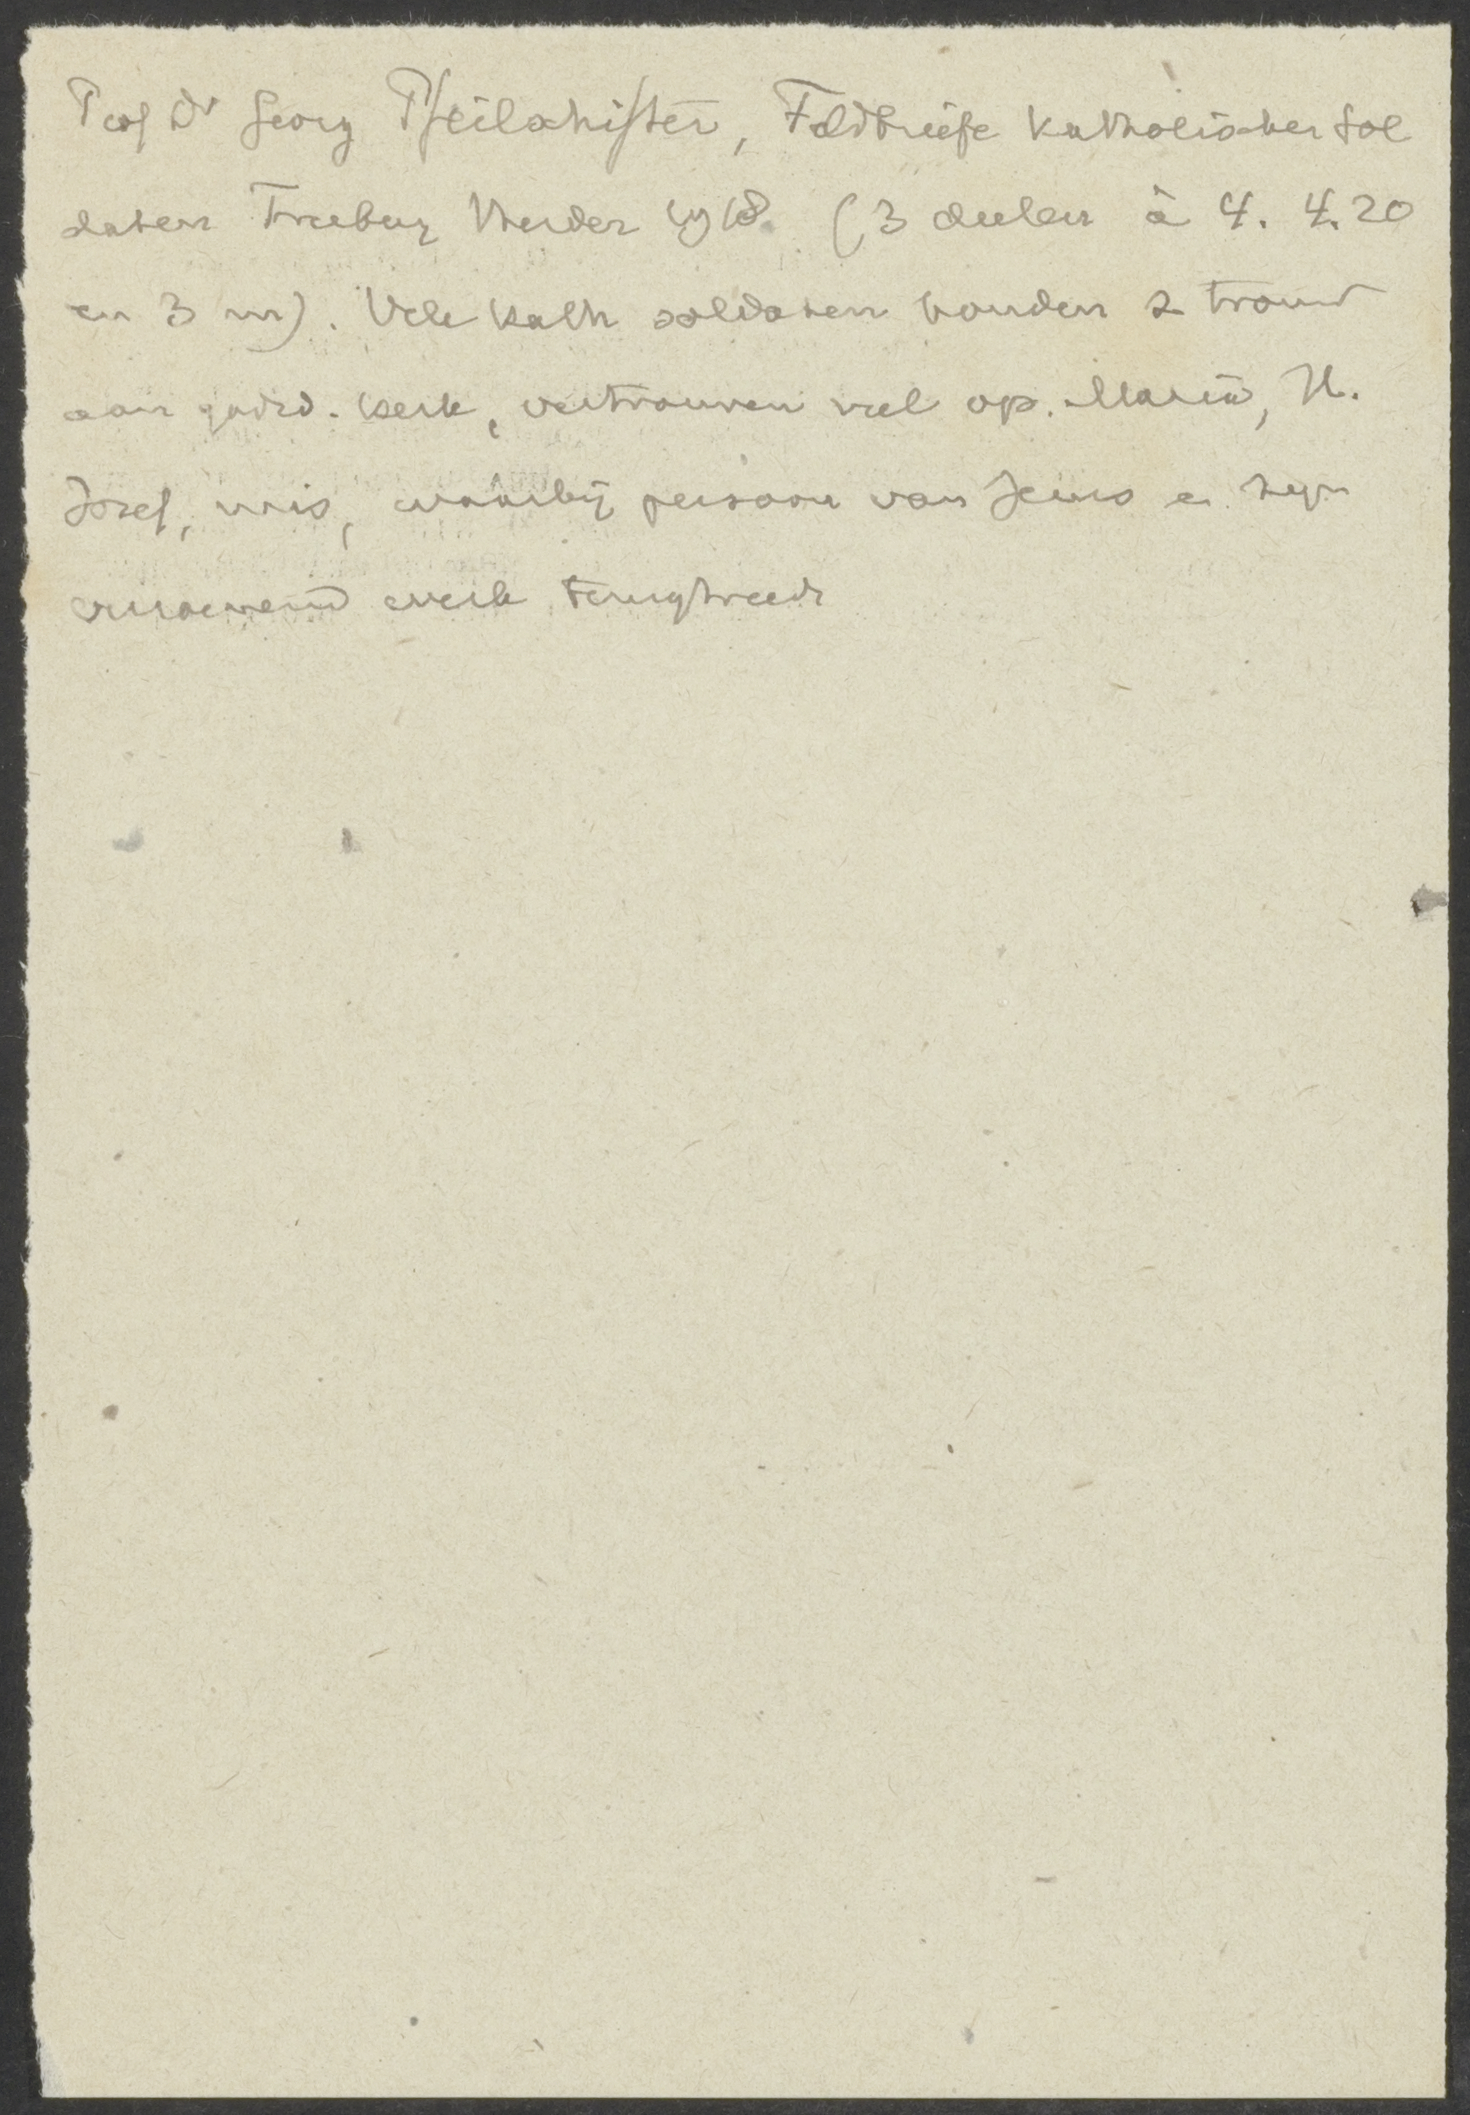 Prof Dr Georg Pfeilschifter, Feldbriefe Katholischer Sol
daten Freiburg Herder 1918. (3 deelen à 4. 4.20
en 3 m). Vele kath soldaten houden z trouw
aan godsd. kerk, vertrouwen veel op. Maria, H.
Jozef, mis, waarbij persoon van Jezus en zijn
werk terugtreedt